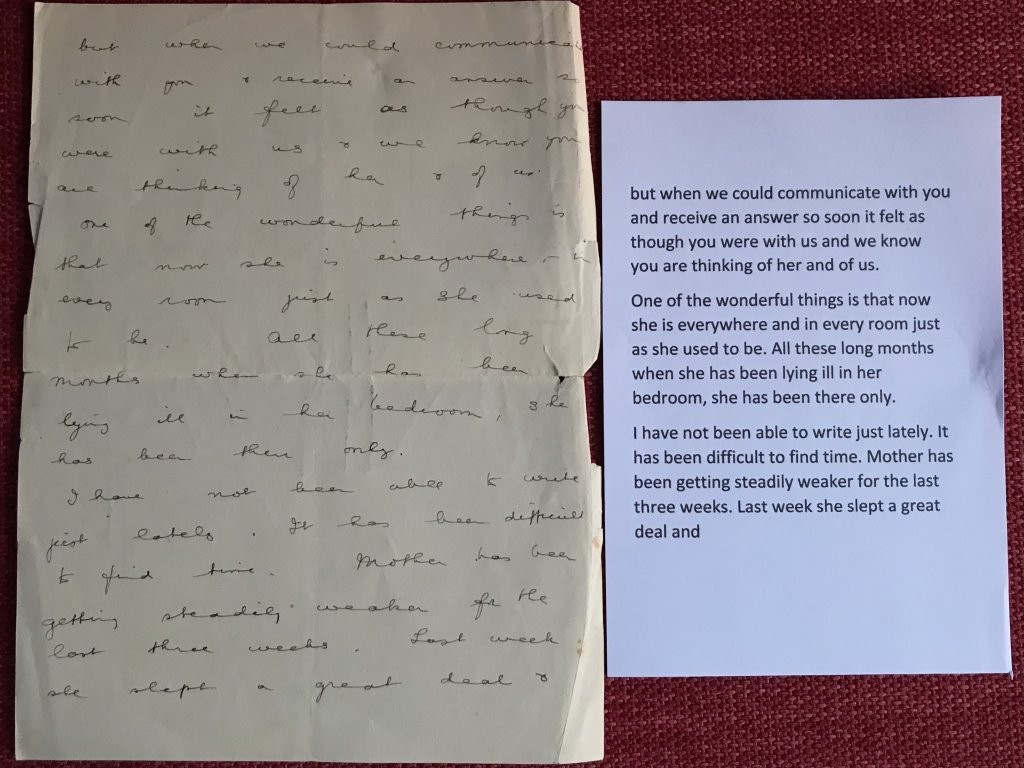 but when we could communicat
with you & receive an answer so
soon it felt as though you
were with us & we know you
are thinking of her & of us.
one of the wonderful things is
that now she is everywhere & in
every room just as she used
to be. All these long
months when she has been
lying ill in her bedroom, she
has been there only.
I have not been able to write
just lately. It has been difficult
to find time. Mother has been
getting steadily weaker for the
last three weeks. Last week
she slept a great deal &
but when we could communicate with you
and receive an answer so soon it felt as
though you were with us and we know
you are thinking of her and of us.
One of the wonderful things is that now
she is everywhere and in every room just
as she used to be. All these long months
when she has been lying ill in her
bedroom, she has been there only.
I have not been able to write just lately. It
has been difficult to find time. Mother has
been getting steadily weaker for the last
three weeks. Last week she slept a great
deal and